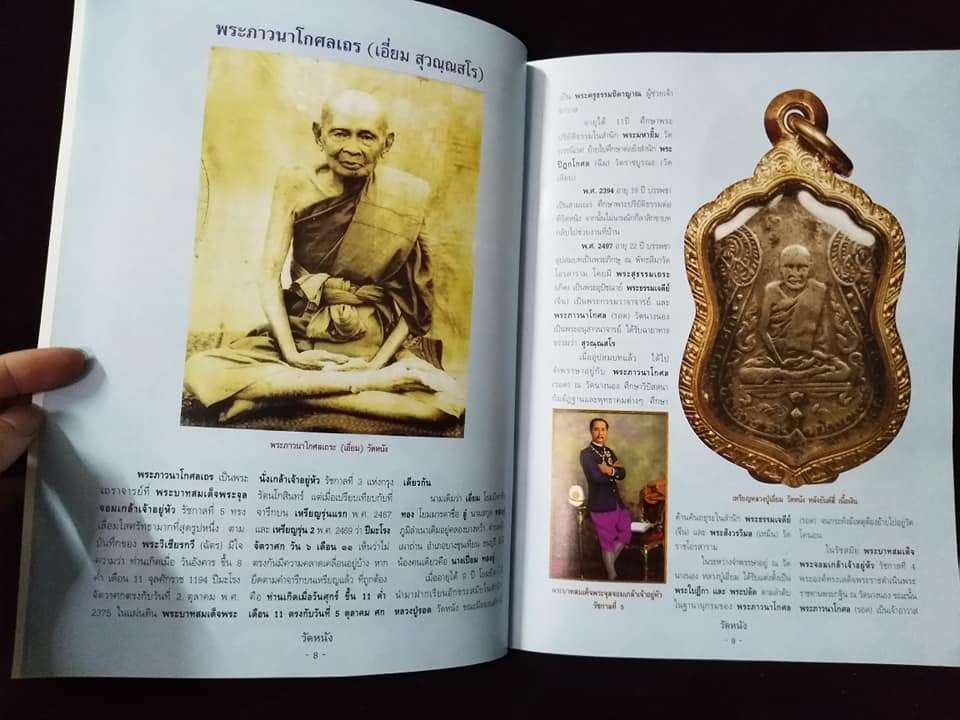 พระภาวนาโกศลเถร (เอี่ยม สุวณฺณสโร)
พระภาวนาโกศลเถระ (เอี่ยม) วัดหนัง
พระภาวนาโกศลเถร เป็นพระ
เถราจารย์ที่ พระบาทสมเด็จพระจุล
จอมเกล้าเจ้าอยู่หัว รัชกาลที่ 5 ทรง
เลื่อมใสศรัทธามากที่สุดรูปหนึ่ง ตาม
บันทึกของ พระวิเชียรกวี (ฉัตร) มีใจ
ความว่า ท่านเกิดเมื่อ วันอังคาร ขึ้น 8
ค่ำ เดือน 11 จุลศักราช 1194 ปีมะโรง
จัตวาศกตรงกับวันที่ 2 ตุลาคม พ.ศ.
2375 ในแผ่นดิน พระบาทสมเด็จพระ
นั่งเกล้าเจ้าอยู่หัว รัชกาลที่ 3 แห่งกรุง
รัตนโกสินทร์ แต่เมื่อเปรียบเทียบกับที่
จารึกบน เหรียญรุ่นแรก พ.ศ. 2467
และ เหรียญรุ่น 2 พ.ศ. 2469 ว่า ปีมะโรง
จัตวาศก วัน ๖ เดือน ๑๑ เห็นว่าไม่
ตรงกันมีความคลาดเคลื่อนอยู่บ้าง หาก
ยึดตามคำจารึกบนเหรียญแล้ว ที่ถูกต้อง
คือ ท่านเกิดเมื่อวันศุกร์ ขึ้น 11 ค่ำ
เดือน 11 ตรงกับวันที่ 5 ตุลาคม ศก
เดียวกัน
นามเดิมว่า เอี่ยม
ทอง โยมมารดาชื่อ อู่ นามสกุล
ภูมิลำเนาเดิมอยู่คลองบางหว้า
เผาถ่าน อำเภอบางขุนเทียน
น้องคนเดียวคือ
เมื่ออายุได้ 9 ปี
นำมาฝากเรียนอักขรสมัย
หลวงปู่รอด วัดหนัง
วัดหนัง
- 8 -
เป็น พระครูธรรมธิดาญาณ ผู้ช่วยเจ้า
อาวาส
อายุได้ 11ปี ศึกษาพระ
ปริยัติธรรมในสำนัก พระมหายิ้ม วัด
ย้ายไปศึกษาต่อยังสำนัก พระ
ปิฎกโกศล (ฉิม) วัดราชบูรณะ (วัด
เลียบ)
พ.ศ. 2394 อายุ 19 ปี บรรพชา
เป็นสามเณร ศึกษาพระปริยัติธรรมต่อ
ที่วัดหนัง จากนั้นไม่นานนักก็ลาสิกขาบท
กลับไปช่วยงานที่บ้าน
พ.ศ. 2497 อายุ 22 ปี บรรพชา
อุปสมบทเป็นพระภิกษุ ณ พัทธสีมาวัด
โดยมี พระสุธรรมเถระ
(เกิด) เป็นพระอุปัชฌาย์ พระธรรมเจดีย์
(จีน) เป็นพระกรรมวาจาจารย์ และ
พระภาวนาโกศล (รอด) วัดนางนอง
เป็นพระอนุสาวนาจารย์ ได้รับฉายาทาง
ธรรมว่า สุวณฺณสโร
เมื่ออุปสมบทแล้ว ได้ไป
จำพรรษาอยู่กับ พระภาวนาโกศล
(รอด) ณ วัดนางนอง ศึกษาวิปัสสนา
กัมมัฏฐานและพุทธาคมต่างๆ ศึกษา
เหรียญหลวงปู่เอี่ยม วัดหนัง หลังยันต์สี่ เนื้อเงิน
พระบาทสมเด็จพระจุลจอมเกล้าเจ้าอยู่หัว
รัชกาลที่ 5
ด้านคันถธุระในสำนัก พระธรรมเจดีย์
(จีน) และ พระสังวรวิมล (เหม็น) วัด
ราชโอรสาราม
ในระหว่างจำพรรษาอยู่ ณ วัด
นางนอง หลวงปู่เอี่ยม ได้รับแต่งตั้งเป็น
พระใบฎีกา และ พระปลัด ตามลำดับ
ในฐานานุกรมของ พระภาวนาโกศล
(รอด) จนกระทั่งมีเหตุต้องย้ายไปอยู่วัด
โคนอน
ในรัชสมัย พระบาทสมเด็จ
พระจอมเกล้าเจ้าอยู่หัว รัชกาลที่ 4
พระองค์ทรงเสด็จพระราชดำเนินพระ
ราชทานพระกฐิน ณ วัดนางนอง ขณะนั้น
พระภาวนาโกศล (รอด) เป็นเจ้าอาวาส
วัดหนัง
- 9 -